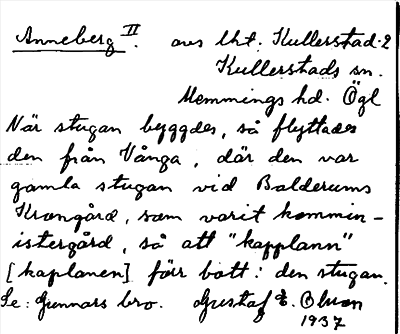 Anneberg II. avs lht. Kullerstad 2
Kullerstads sn.
Memmings hd. Ögl
När stugan byggdes, så flyttades
den från Vånga, där den var
gamla stugan vid Balderums
Krongård, som varit kommin-
istergård, så att "kapplann"
[kaplanen] förr bott i den stugan.
Se: Gunnars bro. Gustaf E. Olsson
1937